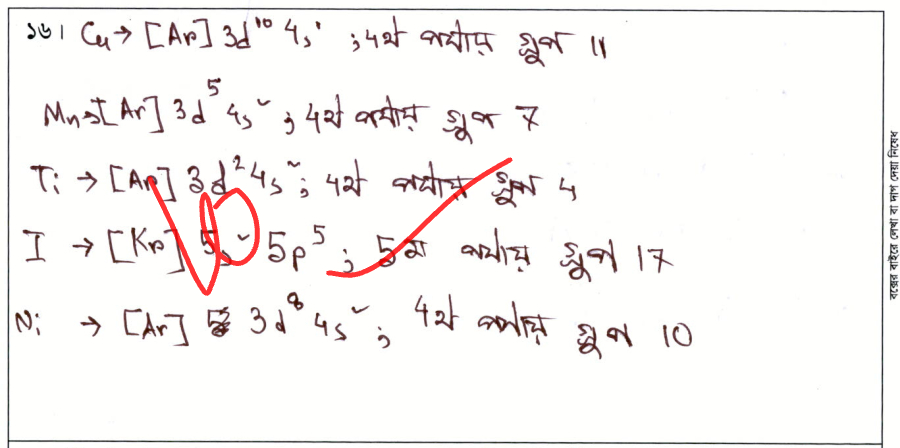 ১৬। Cu → [Ar] 3d¹⁰ 4s¹ ; ৪র্থ পর্যায় গ্রুপ 11
Mn → [Ar] 3d⁵ 4s² ; ৪র্থ পর্যায় গ্রুপ 7
Ti → [Ar] 3d² 4s² ; ৪র্থ পর্যায় গ্রুপ 4
I → [Kr] 5s² 5p⁵ ; 5ম পর্যায় গ্রুপ 17
Ni → [Ar] 3d⁸ 4s² ; ৪র্থ পর্যায় গ্রুপ 10
বক্সের বাইরে লেখা বা দাগ দেয়া নিষেধ